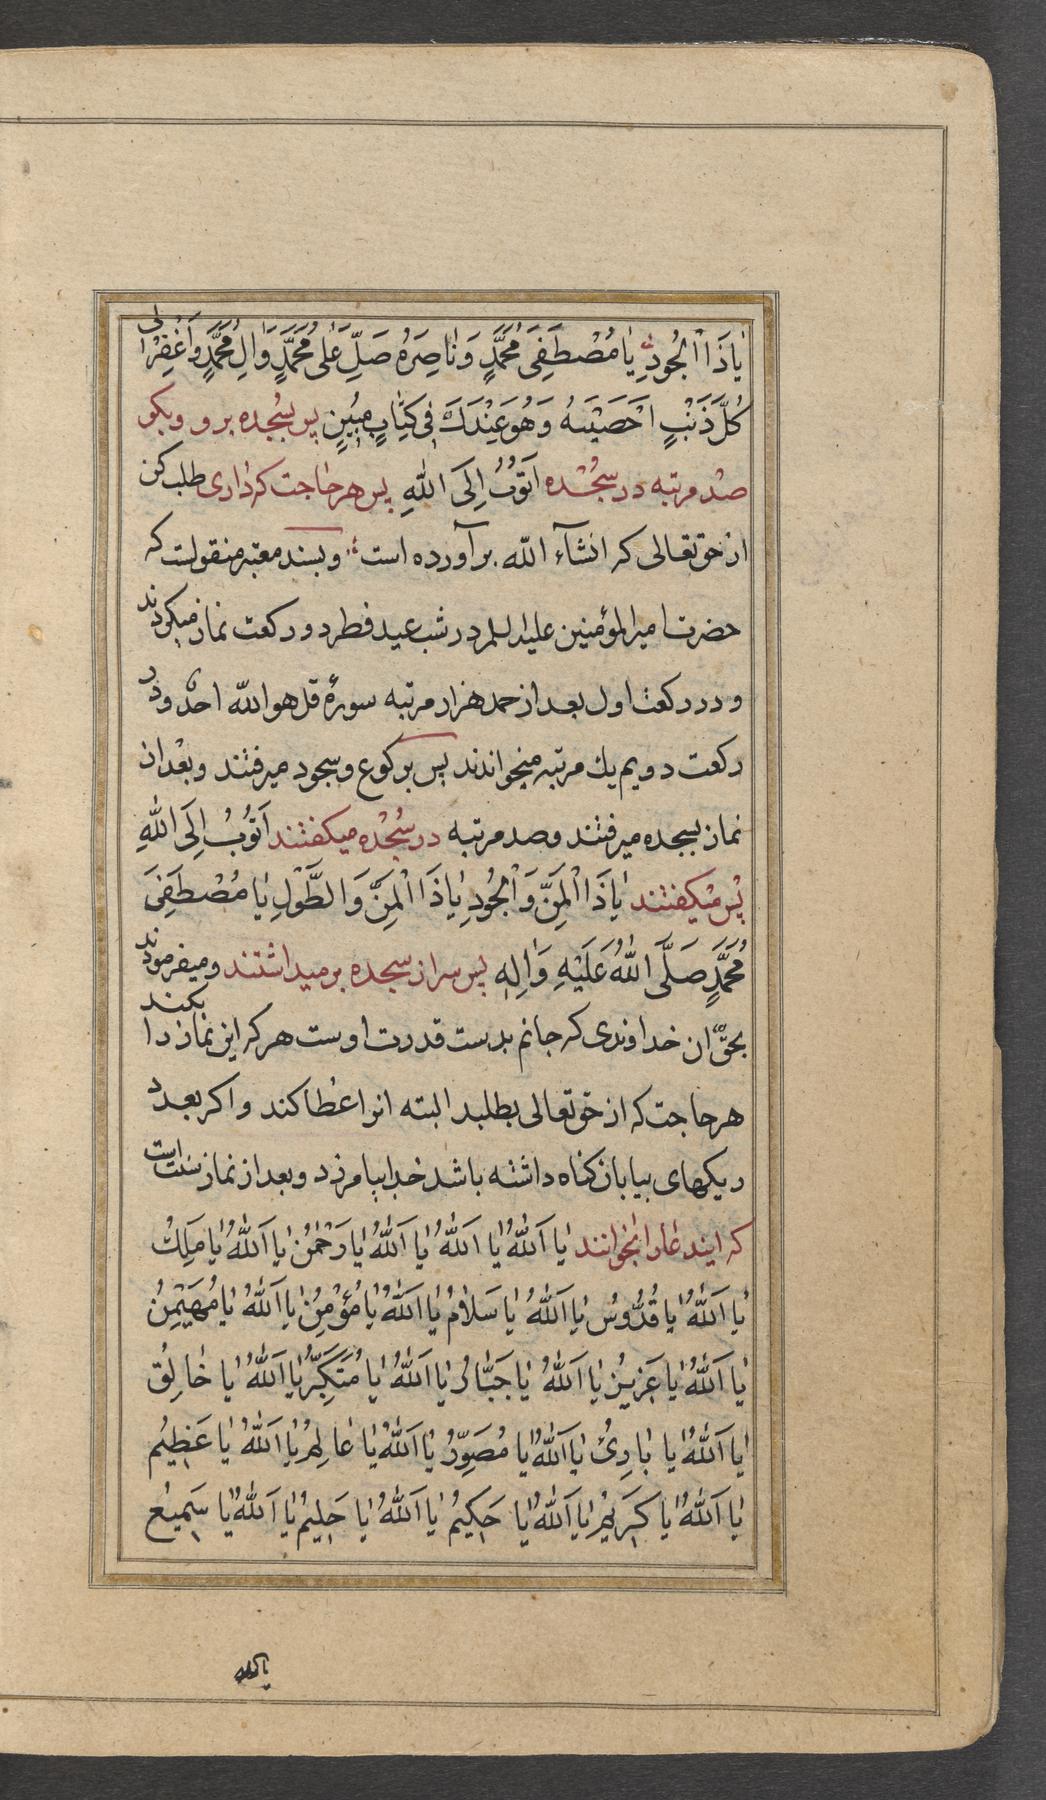 یٰا ذَا الْجُودِ یٰا مُصْطَفِیَ مُحَمَّدٍ وَ نٰاصِرَهُ صَلِّ عَلٰی مُحَمَّدٍ وَ اٰلِ مُحَمَّدٍ وَ اغْفِرْ لی
کُلَّ ذَنْبٍ اَحْصَیْتَهُ وَ هُوَ عِنْدَكَ فی کِتٰابٍ مُبینٍ پس بسجده برو و بکو
صد مرتبه در سجده اَتُوبُ اِلَی اللّٰهِ پس هر حاجت که داری طلب کن
از حق تعالی که انشآء اللّه برآورده است و بسند معتبر منقولست که
حضرت امیر المؤمنین علیه السلم در شب عید فطر دو رکعت نماز میکردند
و در رکعت اول بعد از حمد هزار مرتبه سورۀ قل هو اللّه احد و در
رکعت دویم یك مرتبه میخواندند پس برکوع و سجود میرفتند و بعد از
نماز بسجده میرفتند و صد مرتبه در سجده میکفتند اَتُوبُ اِلَی اللّٰهِ
پس میکفتند یٰا ذَا الْمَنِّ وَ الْجُودِ یٰا ذَا الْمَنِّ وَ الطَّوْلِ یٰا مُصْطَفِیَ
مُحَمَّدٍ صَلَّی اللّٰهُ عَلَیْهِ وَ اٰلِهِ پس سر از سجده برمیداشتند و میفرمودند
بحقّ ان خداوندی که جانم بدست قدرت اوست هر که این نماز را بکند
هر حاجت که از حق تعالی بطلبد البته انرا عطا کند و اکر بعدد
ریکهای بیابان کناه داشته باشد خدا بیامرزد و بعد از نماز سنّت است
که ایندعا را بخوانند یٰا اَللّٰهُ یٰا اَللّٰهُ یٰا اَللّٰهُ یٰا رَحْمٰنُ یٰا اَللّٰهُ یٰا مَلِكُ
یٰا اَللّٰهُ یٰا قُدُّوسُ یٰا اَللّٰهُ یٰا سَلٰامُ یٰا اَللّٰهُ یٰا مُؤْمِنُ یٰا اَللّٰهُ یٰا مُهَیْمِنُ
یٰا اَللّٰهُ یٰا عَزیزُ یٰا اَللّٰهُ یٰا جَبّٰارُ یٰا اَللّٰهُ یٰا مُتَکَبِّرُ یٰا اَللّٰهُ یٰا خٰالِقُ
یٰا اَللّٰهُ یٰا بٰارِئُ یٰا اَللّٰهُ یٰا مُصَوِّرُ یٰا اَللّٰهُ یٰا عٰالِمُ یٰا اَللّٰهُ یٰا عَظیمُ
یٰا اَللّٰهُ یٰا کَریمُ یٰا اَللّٰهُ یٰا حَکیمُ یٰا اَللّٰهُ یٰا حَلیمُ یٰا اَللّٰهُ یٰا سَمیعُ
یا الله